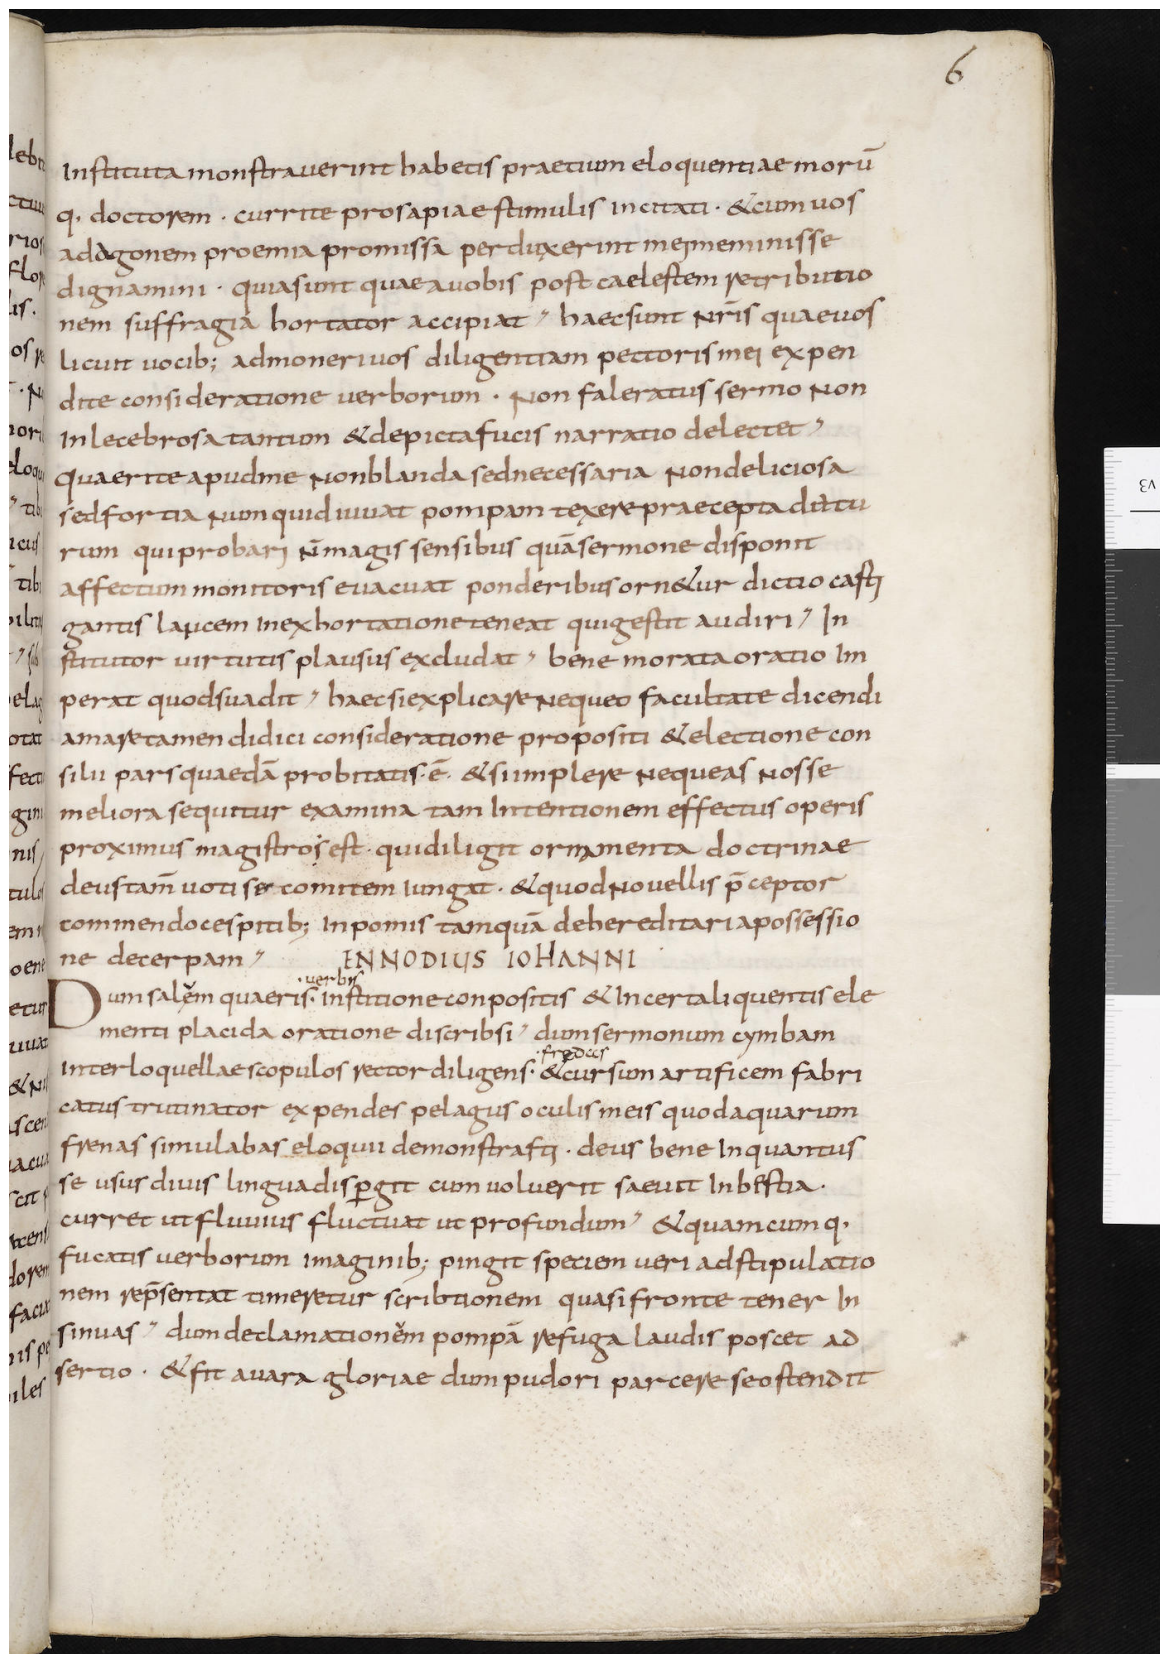 6
Instituta monstraverint habetis praetium eloquentiae morū
q. doctorem · currite prosapiae stimulis incitati · & cum uos
ad agonem proemia promissa perduxerint mei meminisse
dignamini · quia sunt quae a uobis post caelestem retributio
nem suffragia hortator accipiat, haec sunt nr̄is quae uos
licuit uocib; admoneri uos diligentiam pectoris mei expen
dite consideratione verborum · Non faleratus sermo Non
Inlecebrosa tantum & depicta fucis narratio delectet,
quaerite apud me Non blanda sed necessaria Non deliciosa
sed fortia Numquid iuuat pompam texere praecepta datu
rum qui probari N̄ magis sensibus quā sermone disponit
affectum monitoris euacuat ponderibus orn&ur dictio casti
gantis laucem in exhortatione teneat qui gestit audiri, In
stitutor uirtutis plausus excludat, bene morata oratio Im
perat quod suadit, haec si explicare Nequeo facultate dicendi
amare tamen didici consideratione propositi & electione con
silii pars quaedā probitatis · ē · & si implere Nequeas Nosse
meliora sequitur examina tam Intentionem effectus operis
proximus magistros est · qui diligit ornamenta doctrinae
deus tam̄ uoti se comitem iungat · & quod Nouellis p̄ceptor
commendo cespitib; In pomis tamquā de hereditaria possessio
ne decerpam, ENNODIUS IOHANNI
· verbis
Dum salem quaeris · Institione conpositis & In certa liquentis ele
menti placida oratione discribsi, dum sermonum cymbam
Inter loquellae scopulos rector diligens · & cursum artificem fabri
catus trutinator expendes pelagus oculis meis quod aquarum
frenas simulabas eloquii demonstrasti · deus bene In quantus
se usus diuis lingua disp̱git cum uoluerit saeuit In bestia ·
curret ut fluuius fluctuat ut profundum, & quamcumq.
fucatis uerborum imaginib; pingit speciem ueri adstipulatio
nem rep̄sentat timeretur scribtionem quasi fronte tener In
sinuas, dum declamationem pompā refuga laudis poscet ad
sertio · & fit auara gloriae dum pudori parcere se ostendit